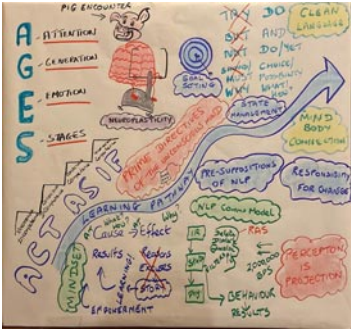 PIG ENCOUNTER
A - ATTENTION
G - GENERATION
E - EMOTION
S - STAGES
NEUROPLASTICITY
GOAL
SETTING
DO
BUT AND
NOT DO/YET
CHOICE/
MUST POSSIBILITY
WHY WHAT/
HOW
CLEAN
LANGUAGE
STATE
MANAGEMENT
MIND
BODY
CONNECTION
PRIME DIRECTIVES
OF THE UNCONSCIOUS MIND
PRE-SUPPOSITIONS
OF NLP
RESPONSIBILITY
FOR CHANGE
ACT AS IF
LEARNING PATHWAY
What?
Why?
Cause → Effect
MINDSET
RESULTS
Reasons
EXCUSES
STORY
LEARNING!
EMPOWERMENT
NLP COMM MODEL
IR
RAS
2000000
BPS
BEHAVIOUR
RESULTS
PERCEPTION
IS
PROJECTION